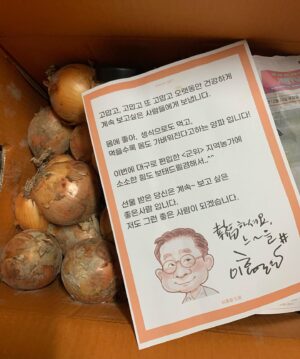 고맙고, 고맙고 또 고맙고 오랫동안 건강하게
계속 보고싶은 사람들에게 보냅니다.
몸에 좋아, 생식으로도 먹고,
먹을수록 몸도 가벼워진다고하는 양파 입니다!
이번에 대구로 편입한 <군위> 지역농가에
소소한 힘도 보태드릴겸해서..^^
선물 받은 당신은 계속~ 보고 싶은
좋은사람 입니다.
저도 그런 좋은 사람이 되겠습니다.